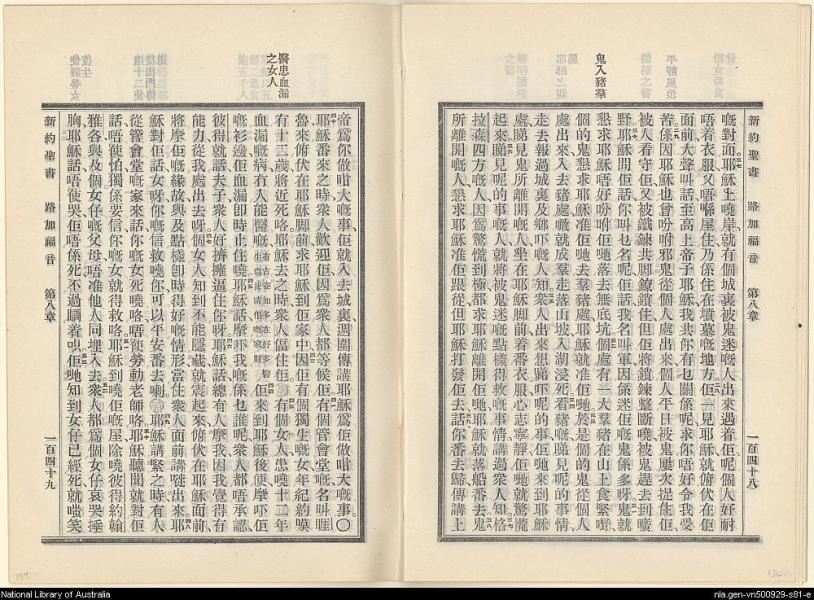 新約聖書 路加福音 第八章 一百四十八
嘅對面耶穌上嘵岸就有個城裏被鬼迷嘅人出來遇着佢呢個人好耐
唔着衣服又唔喺屋住乃係住在墳墓嘅地方佢一見耶穌就俯伏在佢
面前大聲叫話至高上帝子耶穌我共你有乜關係呢求你唔好令我受
苦係因耶穌也曾吩咐邪鬼從個人處出來個人平日被鬼屢次捉住佢
被人看守佢又被鐵鍊共脚鐐鎖住但佢將鎖鍊整斷嘵被鬼趕去到曠
野耶穌問佢話你叫乜名呢佢話我名叫軍因係迷佢嘅鬼係多呀鬼就
鬼入豬羣
懇求耶穌唔好吩咐佢哋落去無底坑個處有一大羣豬在山上食緊嘢
個的鬼懇求耶穌准佢哋去入豬處耶穌就准佢哋於是個的鬼從個人
處出來入去豬處嘅就成羣走落山坡入湖浸死看豬嘅睇見呢的事情
走去報過城裏及鄉吓嘅人知衆人出來想睇吓呢的事佢哋來到耶穌
處睇見鬼所離開嘅人坐在耶穌脚前着番衣服心志寧靜佢哋就驚慌
起來睇見呢的事嘅人就將被鬼迷嘅點樣得救嘅事情講過衆人知格
拉森四方嘅人因爲驚慌到極都求耶穌離開佢哋耶穌就落船番去鬼
所離開嘅人懇求耶穌准佢跟從但耶穌打發佢去話你番去歸傳講上
帝爲你做咁大嘅事佢就入去城裏週圍傳講耶穌爲佢做咁大嘅事〇
耶穌番來之時衆人歡迎佢因爲衆人都等候佢有個管會堂嘅名叫睚
魯來俯伏在耶穌脚前求耶穌到佢家中因佢有個獨生嘅女年紀約莫
醫患血漏之女人
有十二歲將近死咯耶穌去之時衆人偪住佢〇有個女人患嘵十二年
血漏嘅病有人能醫嘅佢來到耶穌後便摩吓佢
嘅衫邊佢血漏卽時止住嘵耶穌話摩吓我嘅係乜誰呢衆人都唔承認
彼得就話夫子衆人好擠擁逼住你呀耶穌話總有人摩我因我覺得有
能力從我處出去呀個女人知到不能隱藏就震起來俯伏在耶穌面前
將摩佢嘅緣故與及點樣卽時得好嘅情形當住衆人面前講嗮出來耶
穌對佢話女呀你嘅信救嘵你可以平安番去喇〇耶穌講緊之時有人
從管會堂嘅家來話你嘅女死嘵咯唔使勞動老師咯耶穌聽聞就對佢
話唔使怕獨係要信你嘅女就得救咯耶穌到嘵佢嘅屋除嘵彼得約翰
雅各與及個女仔嘅父母唔准他人同埋入去衆人都爲個女仔哀哭捶
胸耶穌話唔使哭佢唔係死不過瞓着啫佢哋知到女仔已經死就嗤笑
新約聖書 路加福音 第八章 一百四十九
National Library of Australia
nla.gen-vn500929-s81-e